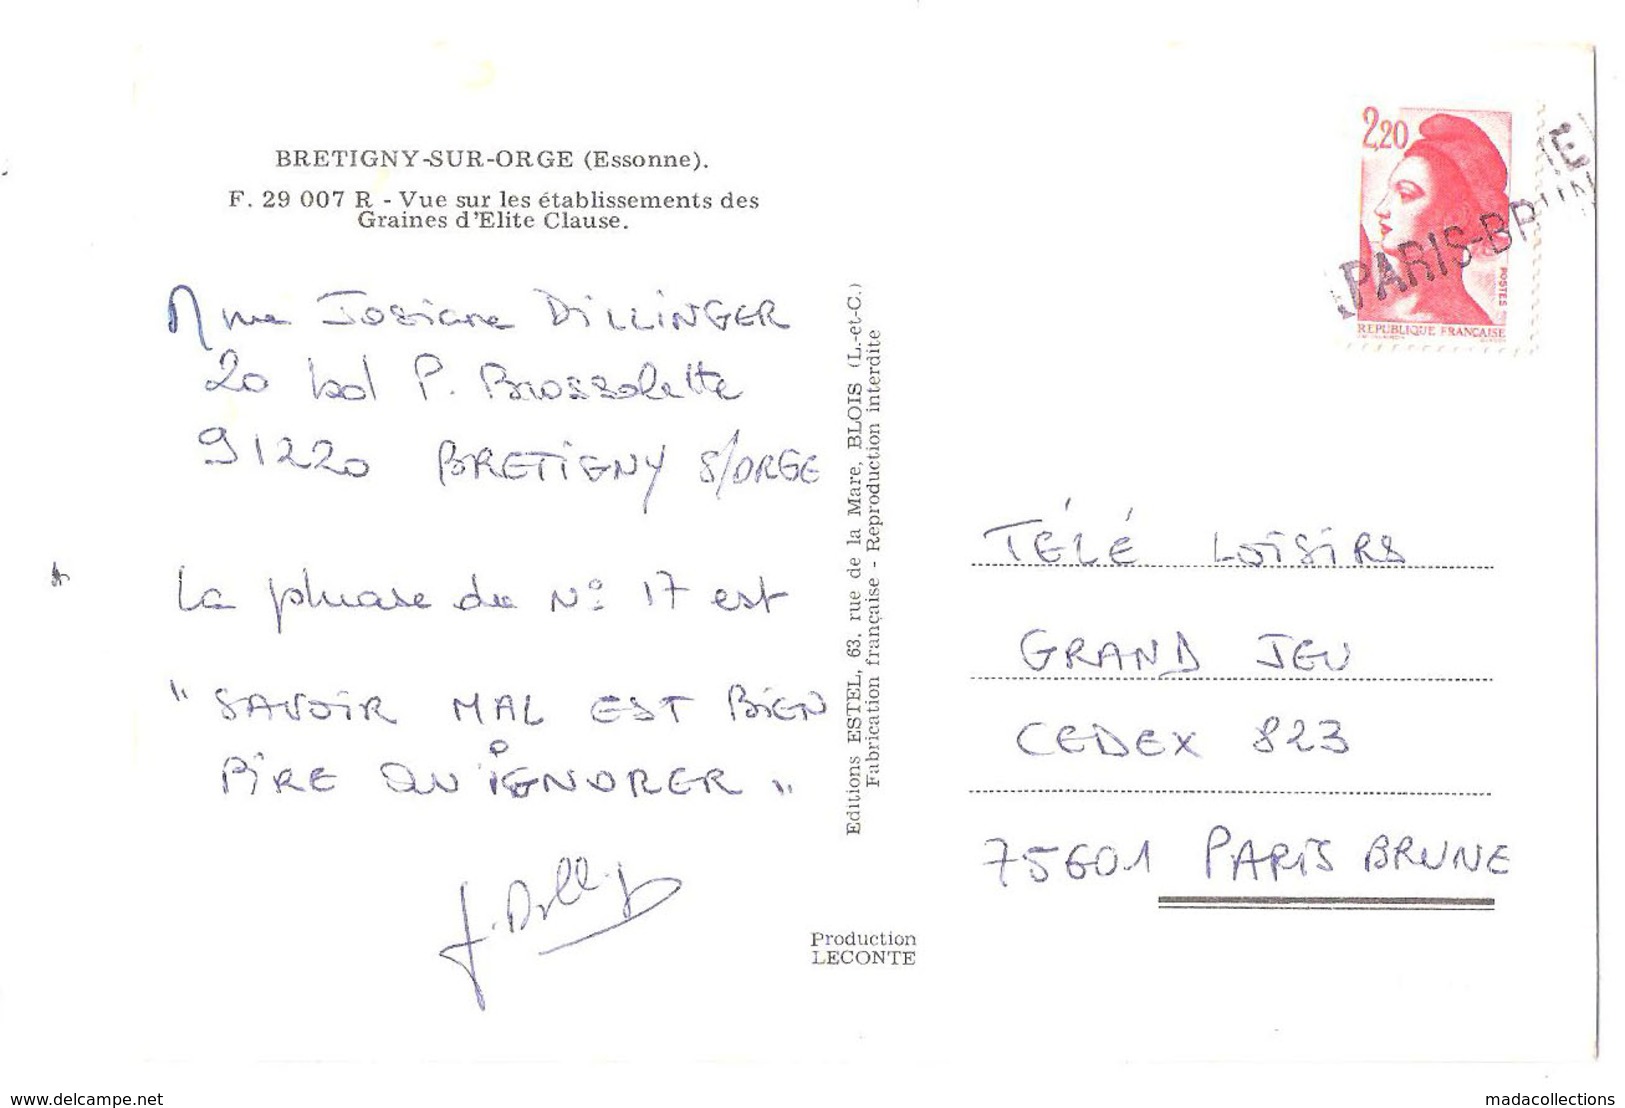 BRETIGNY-SUR-ORGE (Essonne).
F. 29 007 R - Vue sur les établissements des
Graines d'Elite Clause.
Mme Josiane DILLINGER
20 bd P. Brossolette
91220 BRETIGNY S/ORGE
La phrase du N° 17 est
"SAVOIR MAL EST BIEN
PIRE QU'IGNORER"
Editions ESTEL, 63, rue de la Mare, BLOIS (L.-et-C.)
Fabrication française - Reproduction interdite
Production
LECONTE
2,20
POSTES
REPUBLIQUE FRANÇAISE
PARIS-BRUN
TÉLÉ LOISIRS
GRAND JEU
CEDEX 823
75601 PARIS BRUNE
www.delcampe.net
madacollections